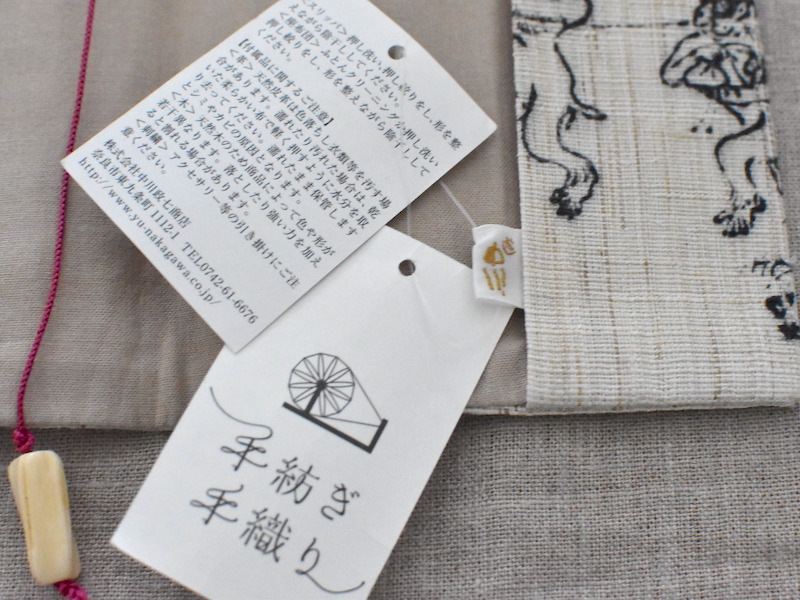 <スリッパ>押し洗い、押し絞りをし、形を整
えながら陰干ししてください。
<座布団>中わたしクリーニング☆押し洗い
押し絞りをし、形を整えながら陰干しして
ください。
【付属品に関するご注意】
<革>天然皮革は色落ちし、衣類等を汚す場
合があります。濡れたり汚れた場合は、乾
いた柔らかい布で軽く押すように水分を取
り去ってください。濡れたまま保管します
とシミやカビの原因となります。
<木>天然木のため商品によって色や形が
若干異なります。落としたり強い力を加え
ると割れる場合があります。
<刺繍>アクセサリー等の引き掛けにご注
意ください。
株式会社中川政七商店
奈良市東九条町1112-1 TEL0742-61-6676
http://www.yu-nakagawa.co.jp/
手紡ぎ
手織り